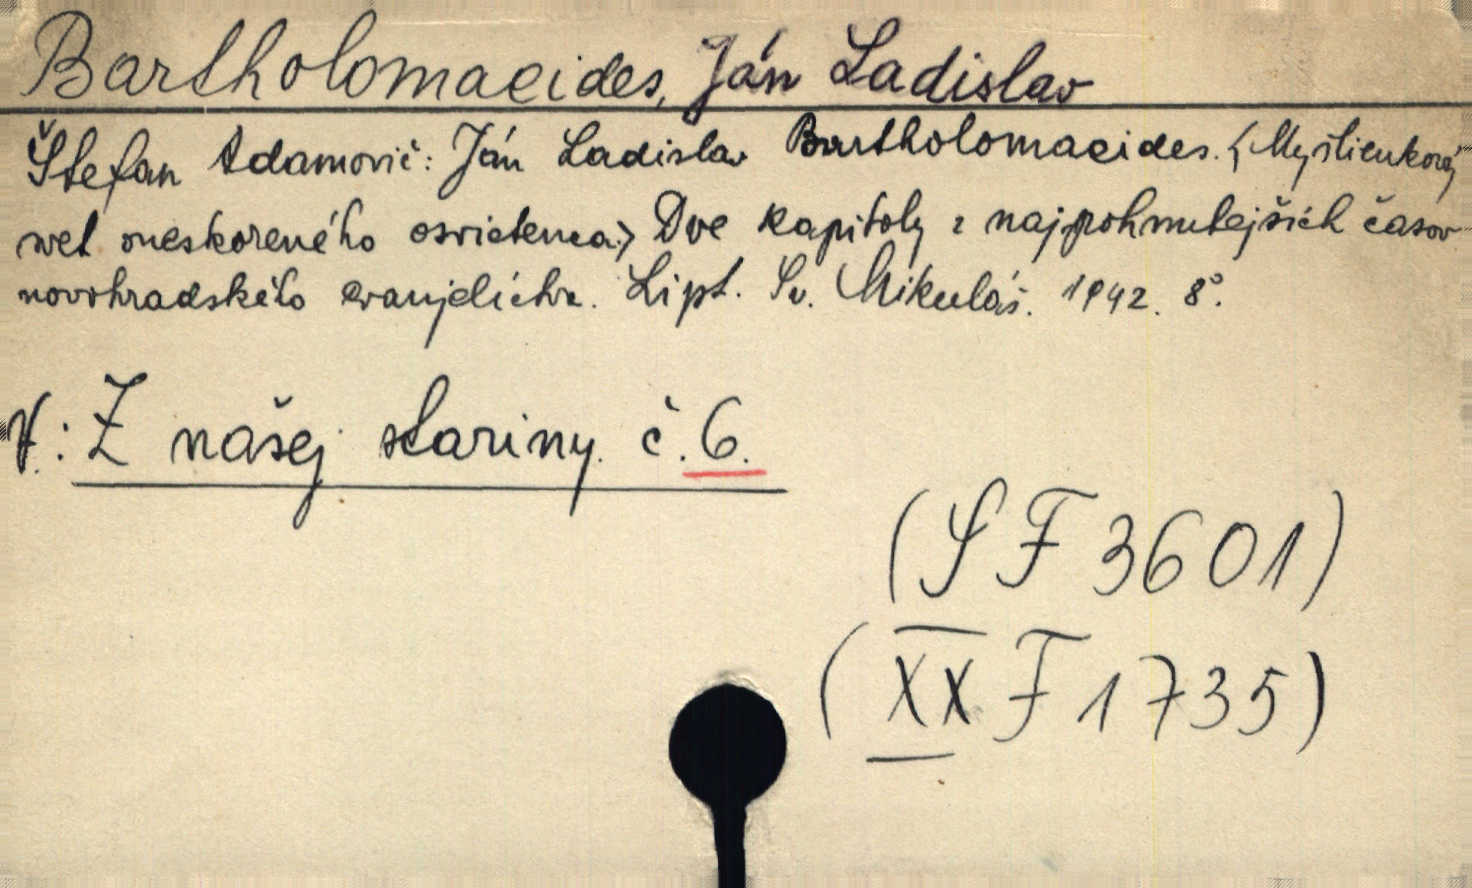 Bartholomaeides, Ján Ladislav
Štefan Adamovič: Ján Ladislav Bartholomaeides. <Myšlienkový
svet oneskoreného osvietenca> Dve kapitoly z najpohnutejších časov
novohradského evanjelictva. Lipt. Sv. Mikuláš. 1942. 8°.
V: Z našej stariny. č. 6.
(SF 3601)
(XX F 1735)